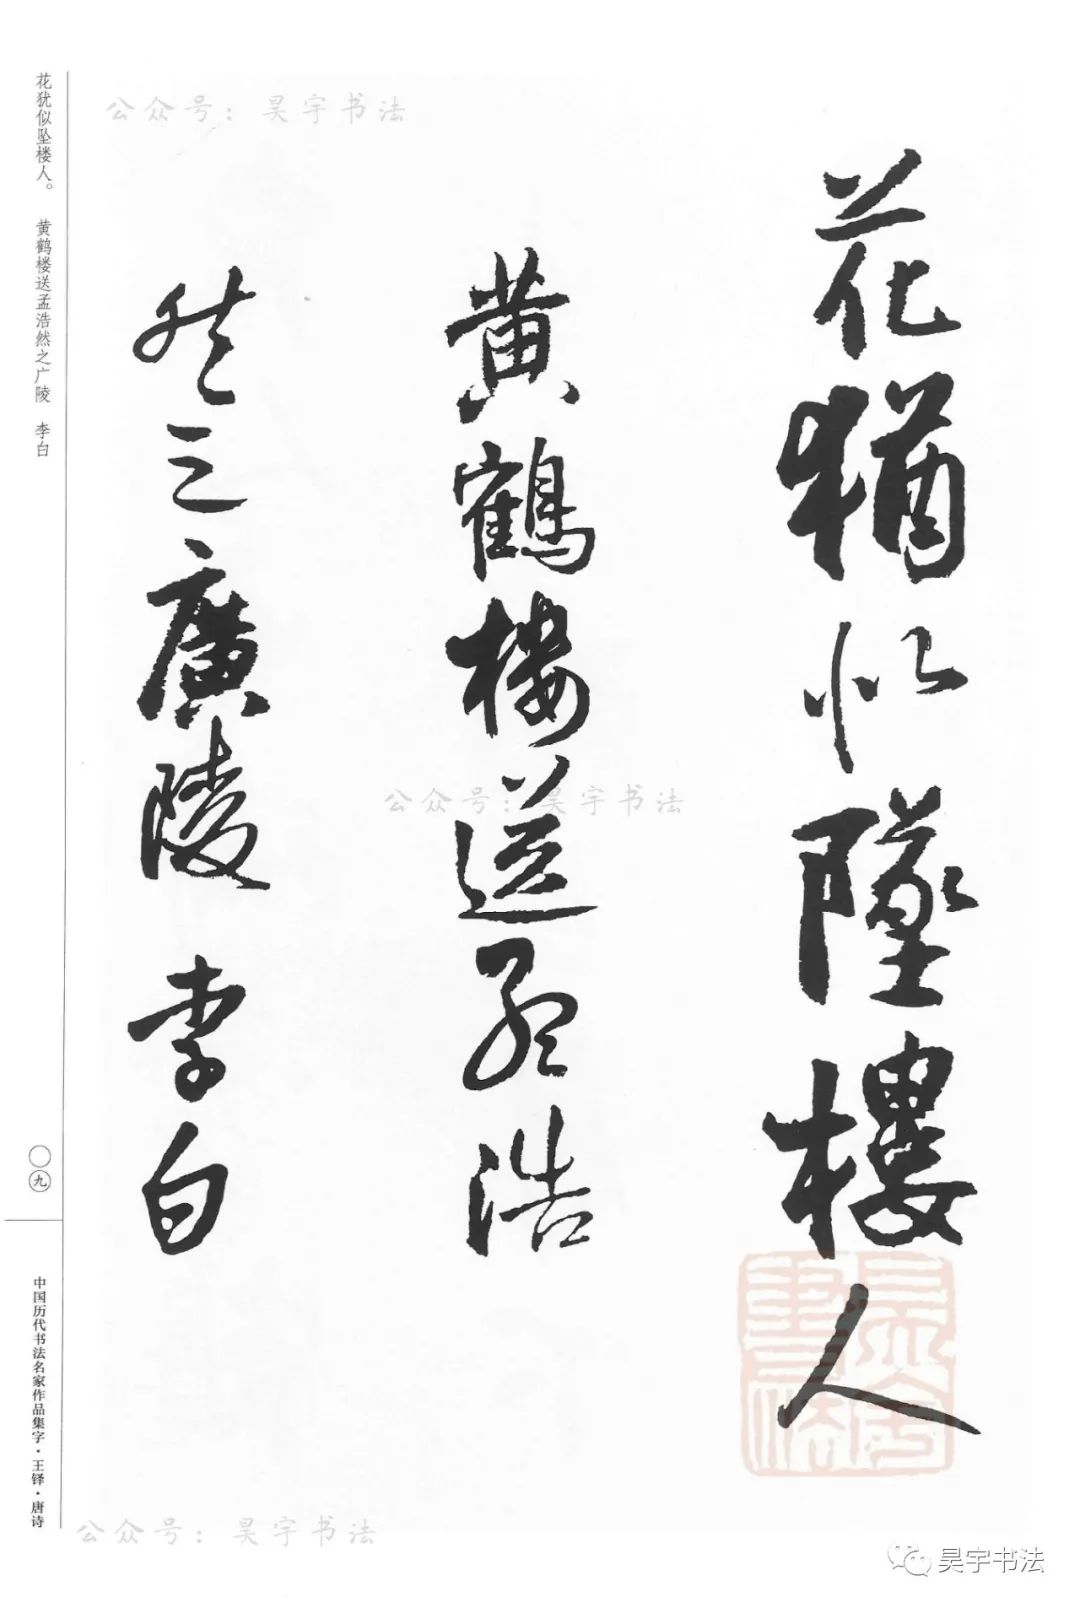 花猶似墜樓人
黄鶴樓送孟浩
然之廣陵 李白
花犹似坠楼人。 黄鹤楼送孟浩然之广陵 李白
〇九
中国历代书法名家作品集字·王铎·唐诗
公众号：昊宇书法
公众号：昊宇书法
公众号：昊宇书法
昊宇书法
昊宇書法